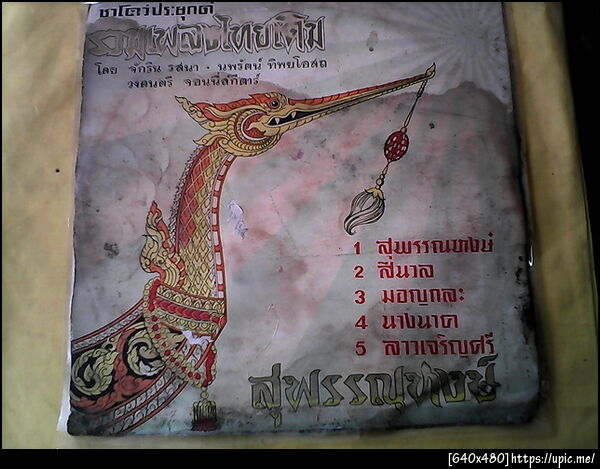 ชาโดว์ประยุกต์
รวมเพลงไทยเดิม
โดย จักริน รสนา · นพรัตน์ ทิพยโอสถ
วงดนตรี จอนนี่ส์กีตาร์
1 สุพรรณหงษ์
2 สีนวล
3 มอญกละ
4 นางนาค
5 ลาวเจริญศรี
สุพรรณหงษ์
[640x480]https://upic.me/